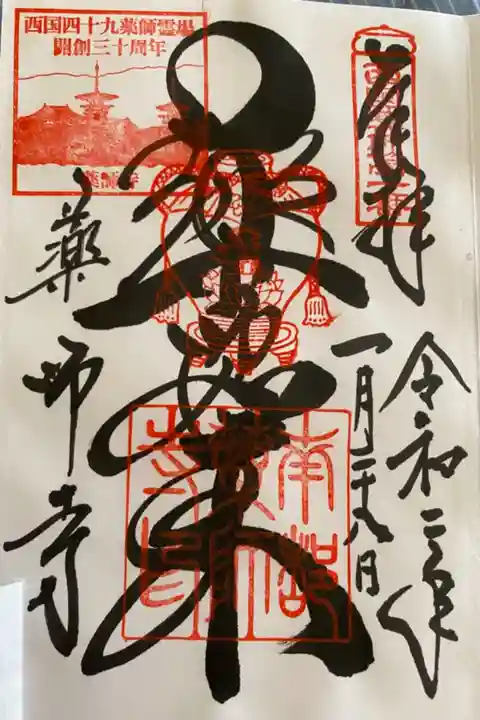 奉拝
令和二年
一月二十八日
薬師如来
南都
薬師
寺印
西国四十九薬師霊場
開創三十周年
薬師寺
薬師寺